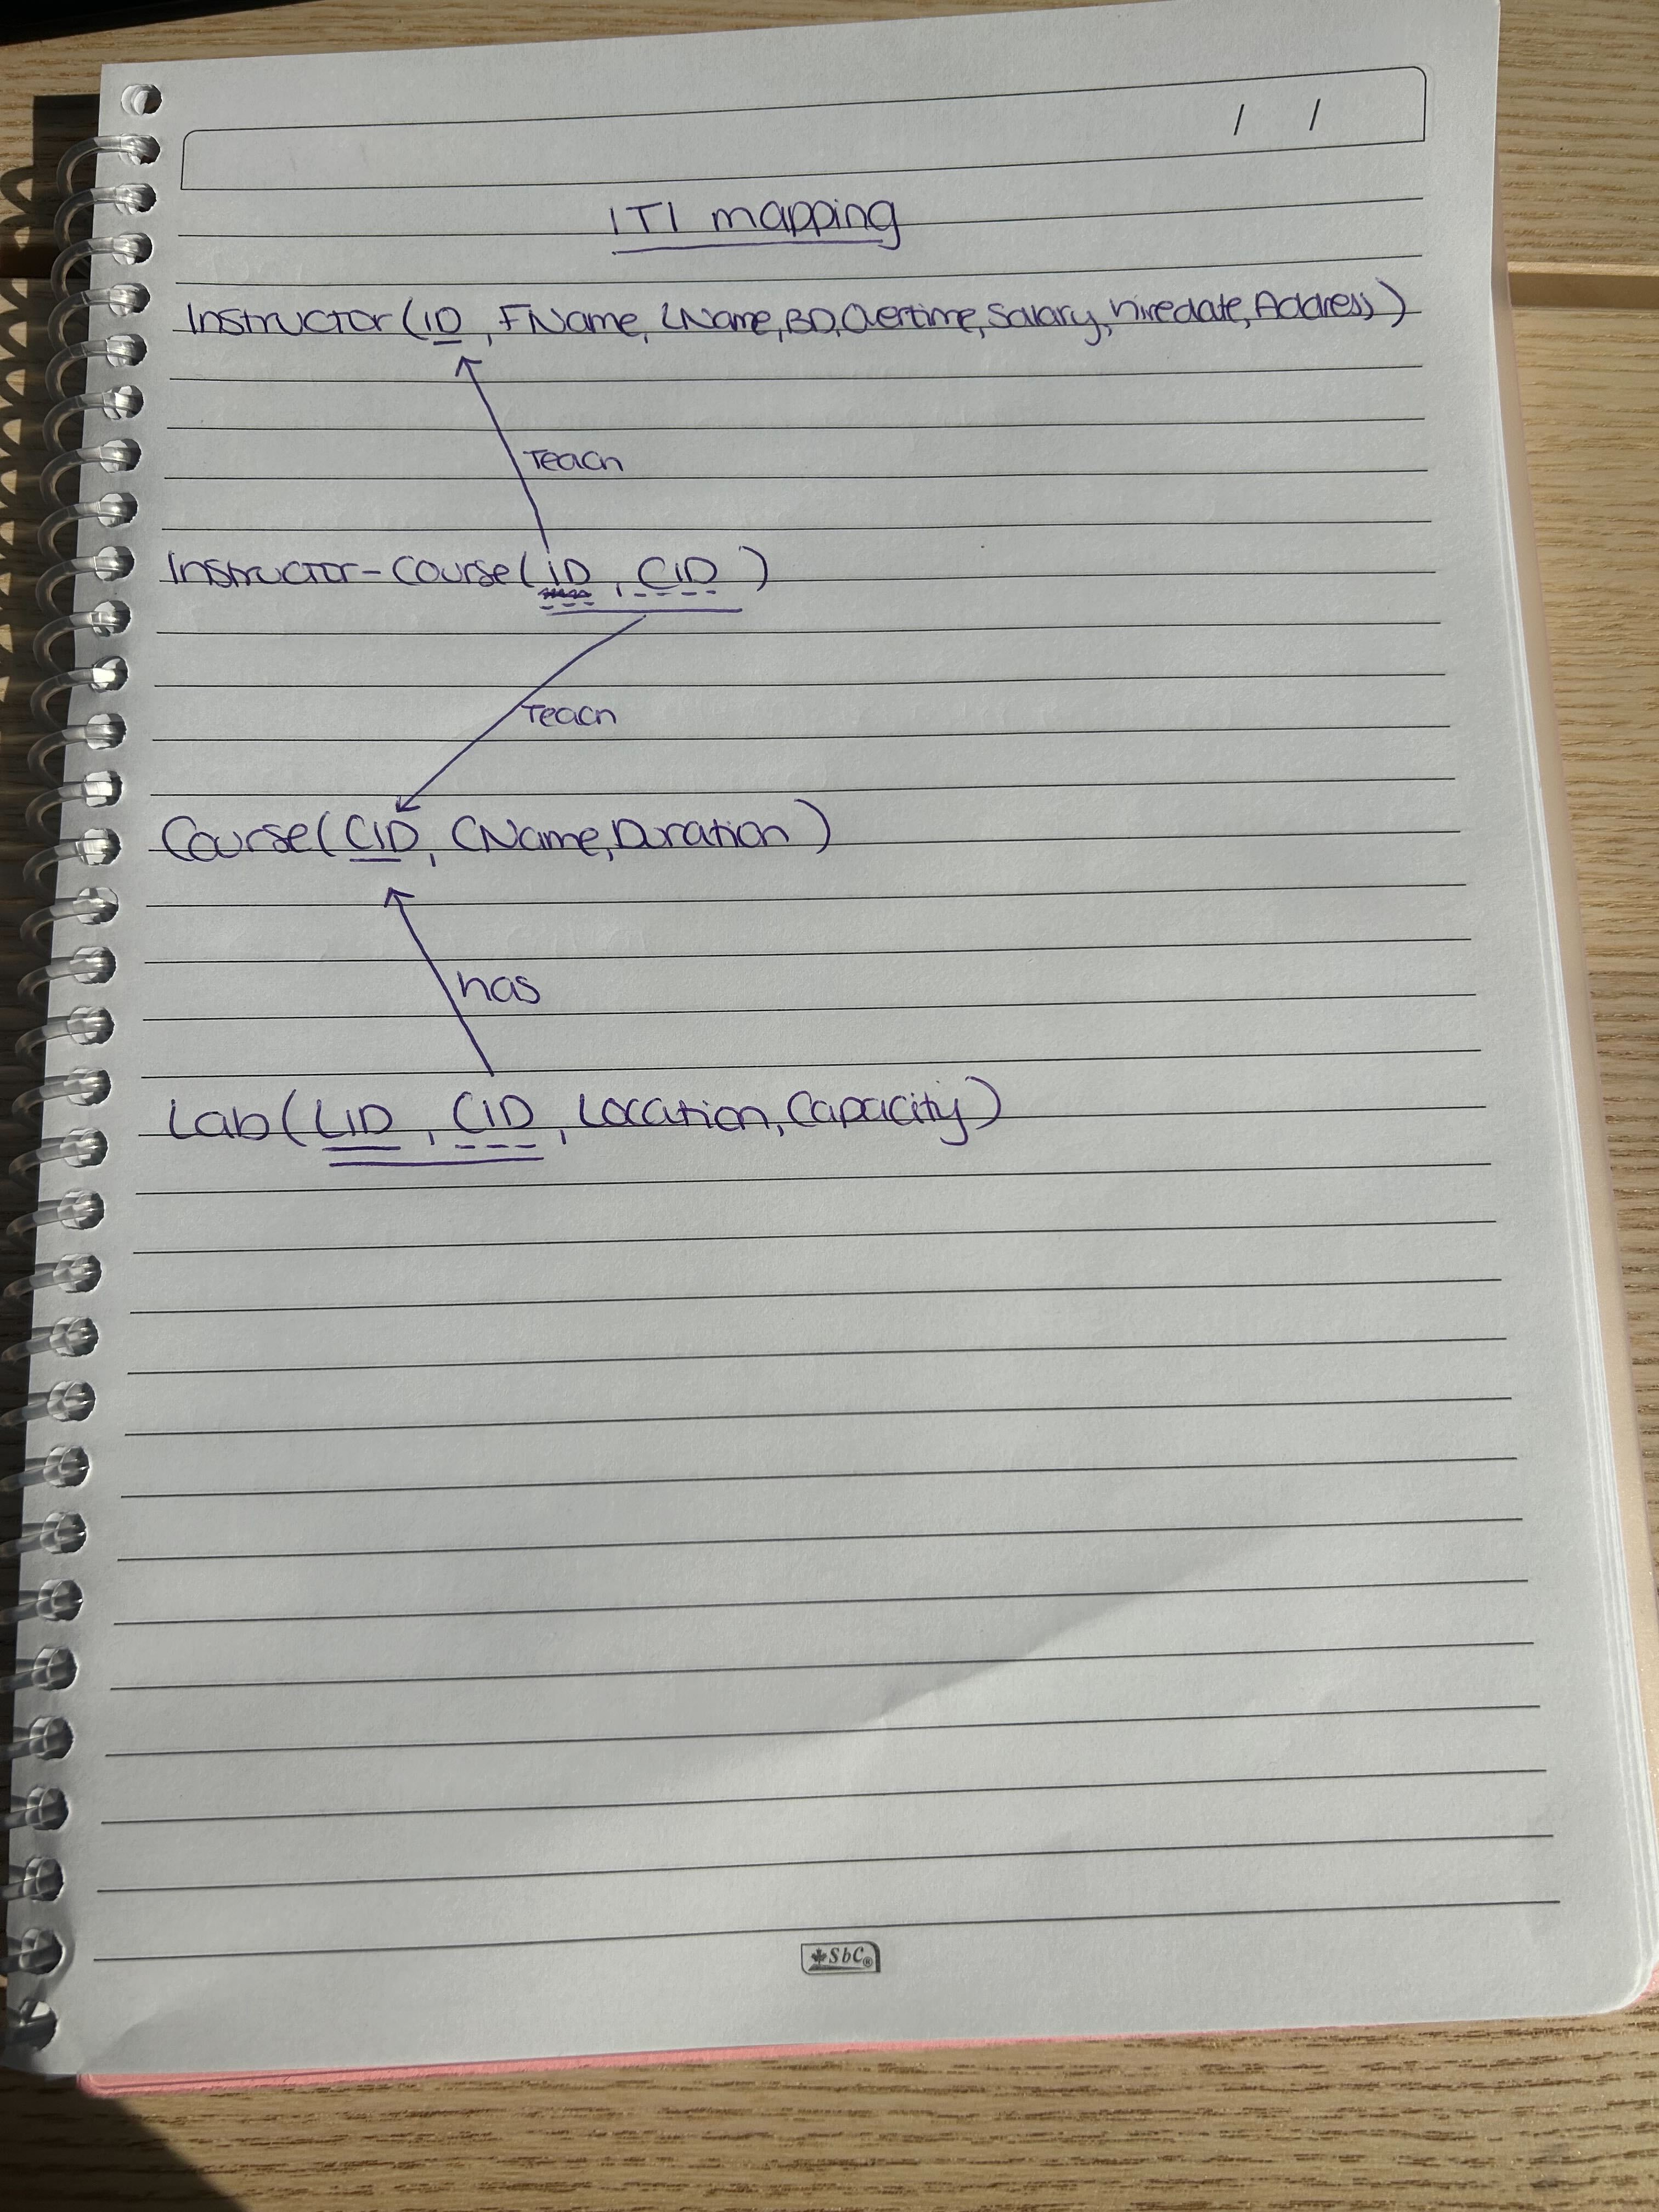 / /
ITI mapping
Instructor(ID, FName, LName, BD, Overtime, Salary, hiredate, Address)
Teach
Instructor-Course(ID, CID)
Teach
Course(CID, CName, Duration)
has
Lab(LID, CID, Location, Capacity)
SbC®